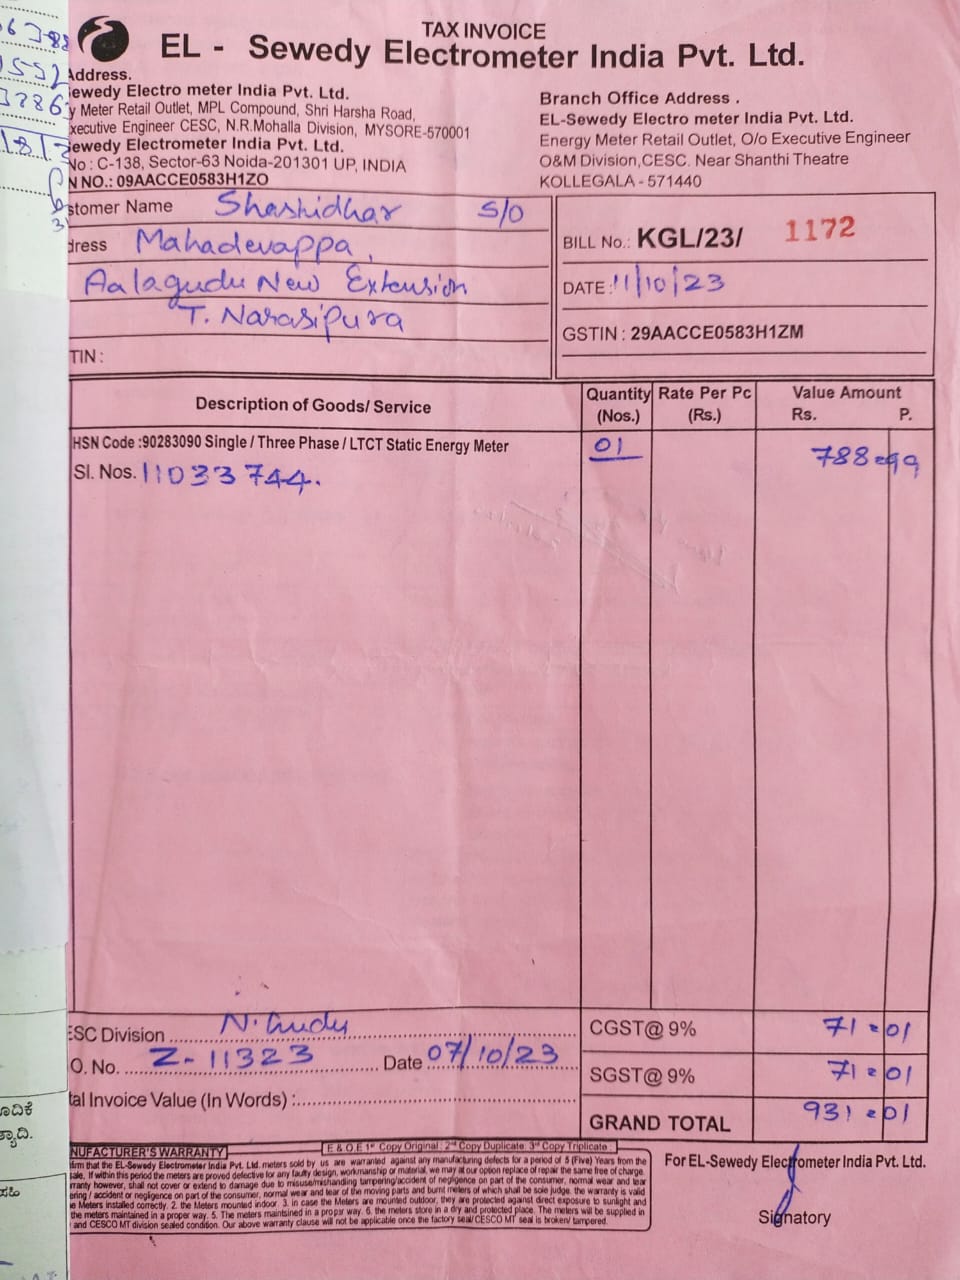 TAX INVOICE
EL - Sewedy Electrometer India Pvt. Ltd.
Address.
Sewedy Electro meter India Pvt. Ltd.
y Meter Retail Outlet, MPL Compound, Shri Harsha Road,
xecutive Engineer CESC, N.R.Mohalla Division, MYSORE-570001
Sewedy Electrometer India Pvt. Ltd.
No : C-138, Sector-63 Noida-201301 UP, INDIA
N NO.: 09AACCE0583H1ZO
Branch Office Address .
EL-Sewedy Electro meter India Pvt. Ltd.
Energy Meter Retail Outlet, O/o Executive Engineer
O&M Division,CESC. Near Shanthi Theatre
KOLLEGALA - 571440
stomer Name Shashidhar S/O
dress Mahadevappa,
Aalagudu New Extension
T. Narasipura
TIN :
BILL No.: KGL/23/ 1172
DATE : 11/10/23
GSTIN : 29AACCE0583H1ZM
Description of Goods/ Service Quantity (Nos.) Rate Per Pc (Rs.) Value Amount Rs. P.
HSN Code :90283090 Single / Three Phase / LTCT Static Energy Meter 01 788=99
Sl. Nos. 11033744.
ESC Division N. Gudu
CGST@ 9% 71=01
O. No. Z-11323 Date 07/10/23
SGST@ 9% 71=01
tal Invoice Value (In Words) :
GRAND TOTAL 931=01
E & O E 1st Copy Original : 2nd Copy Duplicate: 3rd Copy Triplicate :
NUFACTURER'S WARRANTY
firm that the EL-Sewedy Electrometer India Pvt. Ltd. meters sold by us are warranted against any manufacturing defects for a period of 5 (Five) Years from the
sale. If within this period the meters are proved defective for any faulty design, workmanship or material, we may at our option replace of repair the same free of charge.
rranty however, shall not cover or extend to damage due to misuse/mishandling tampering/accident of negligence on part of the consumer, normal wear and tear
ering / accident or negligence on part of the consumer, normal wear and tear of the moving parts and burnt meters of which shall be sole judge. the warranty is valid
e Meters installed correctly. 2. the Meters mounted indoor. 3. in case the Meters are mounted outdoor, they are protected against direct exposure to sunlight and
the meters maintained in a proper way. 5. The meters maintsined in a propar way. 6. the meters store in a dry and protected place. The meters will be supplied in
and CESCO MT division sealed condition. Our above warranty clause will not be applicable once the factory seal/CESCO MT seal is broken/ tampered.
For EL-Sewedy Electrometer India Pvt. Ltd.
Signatory